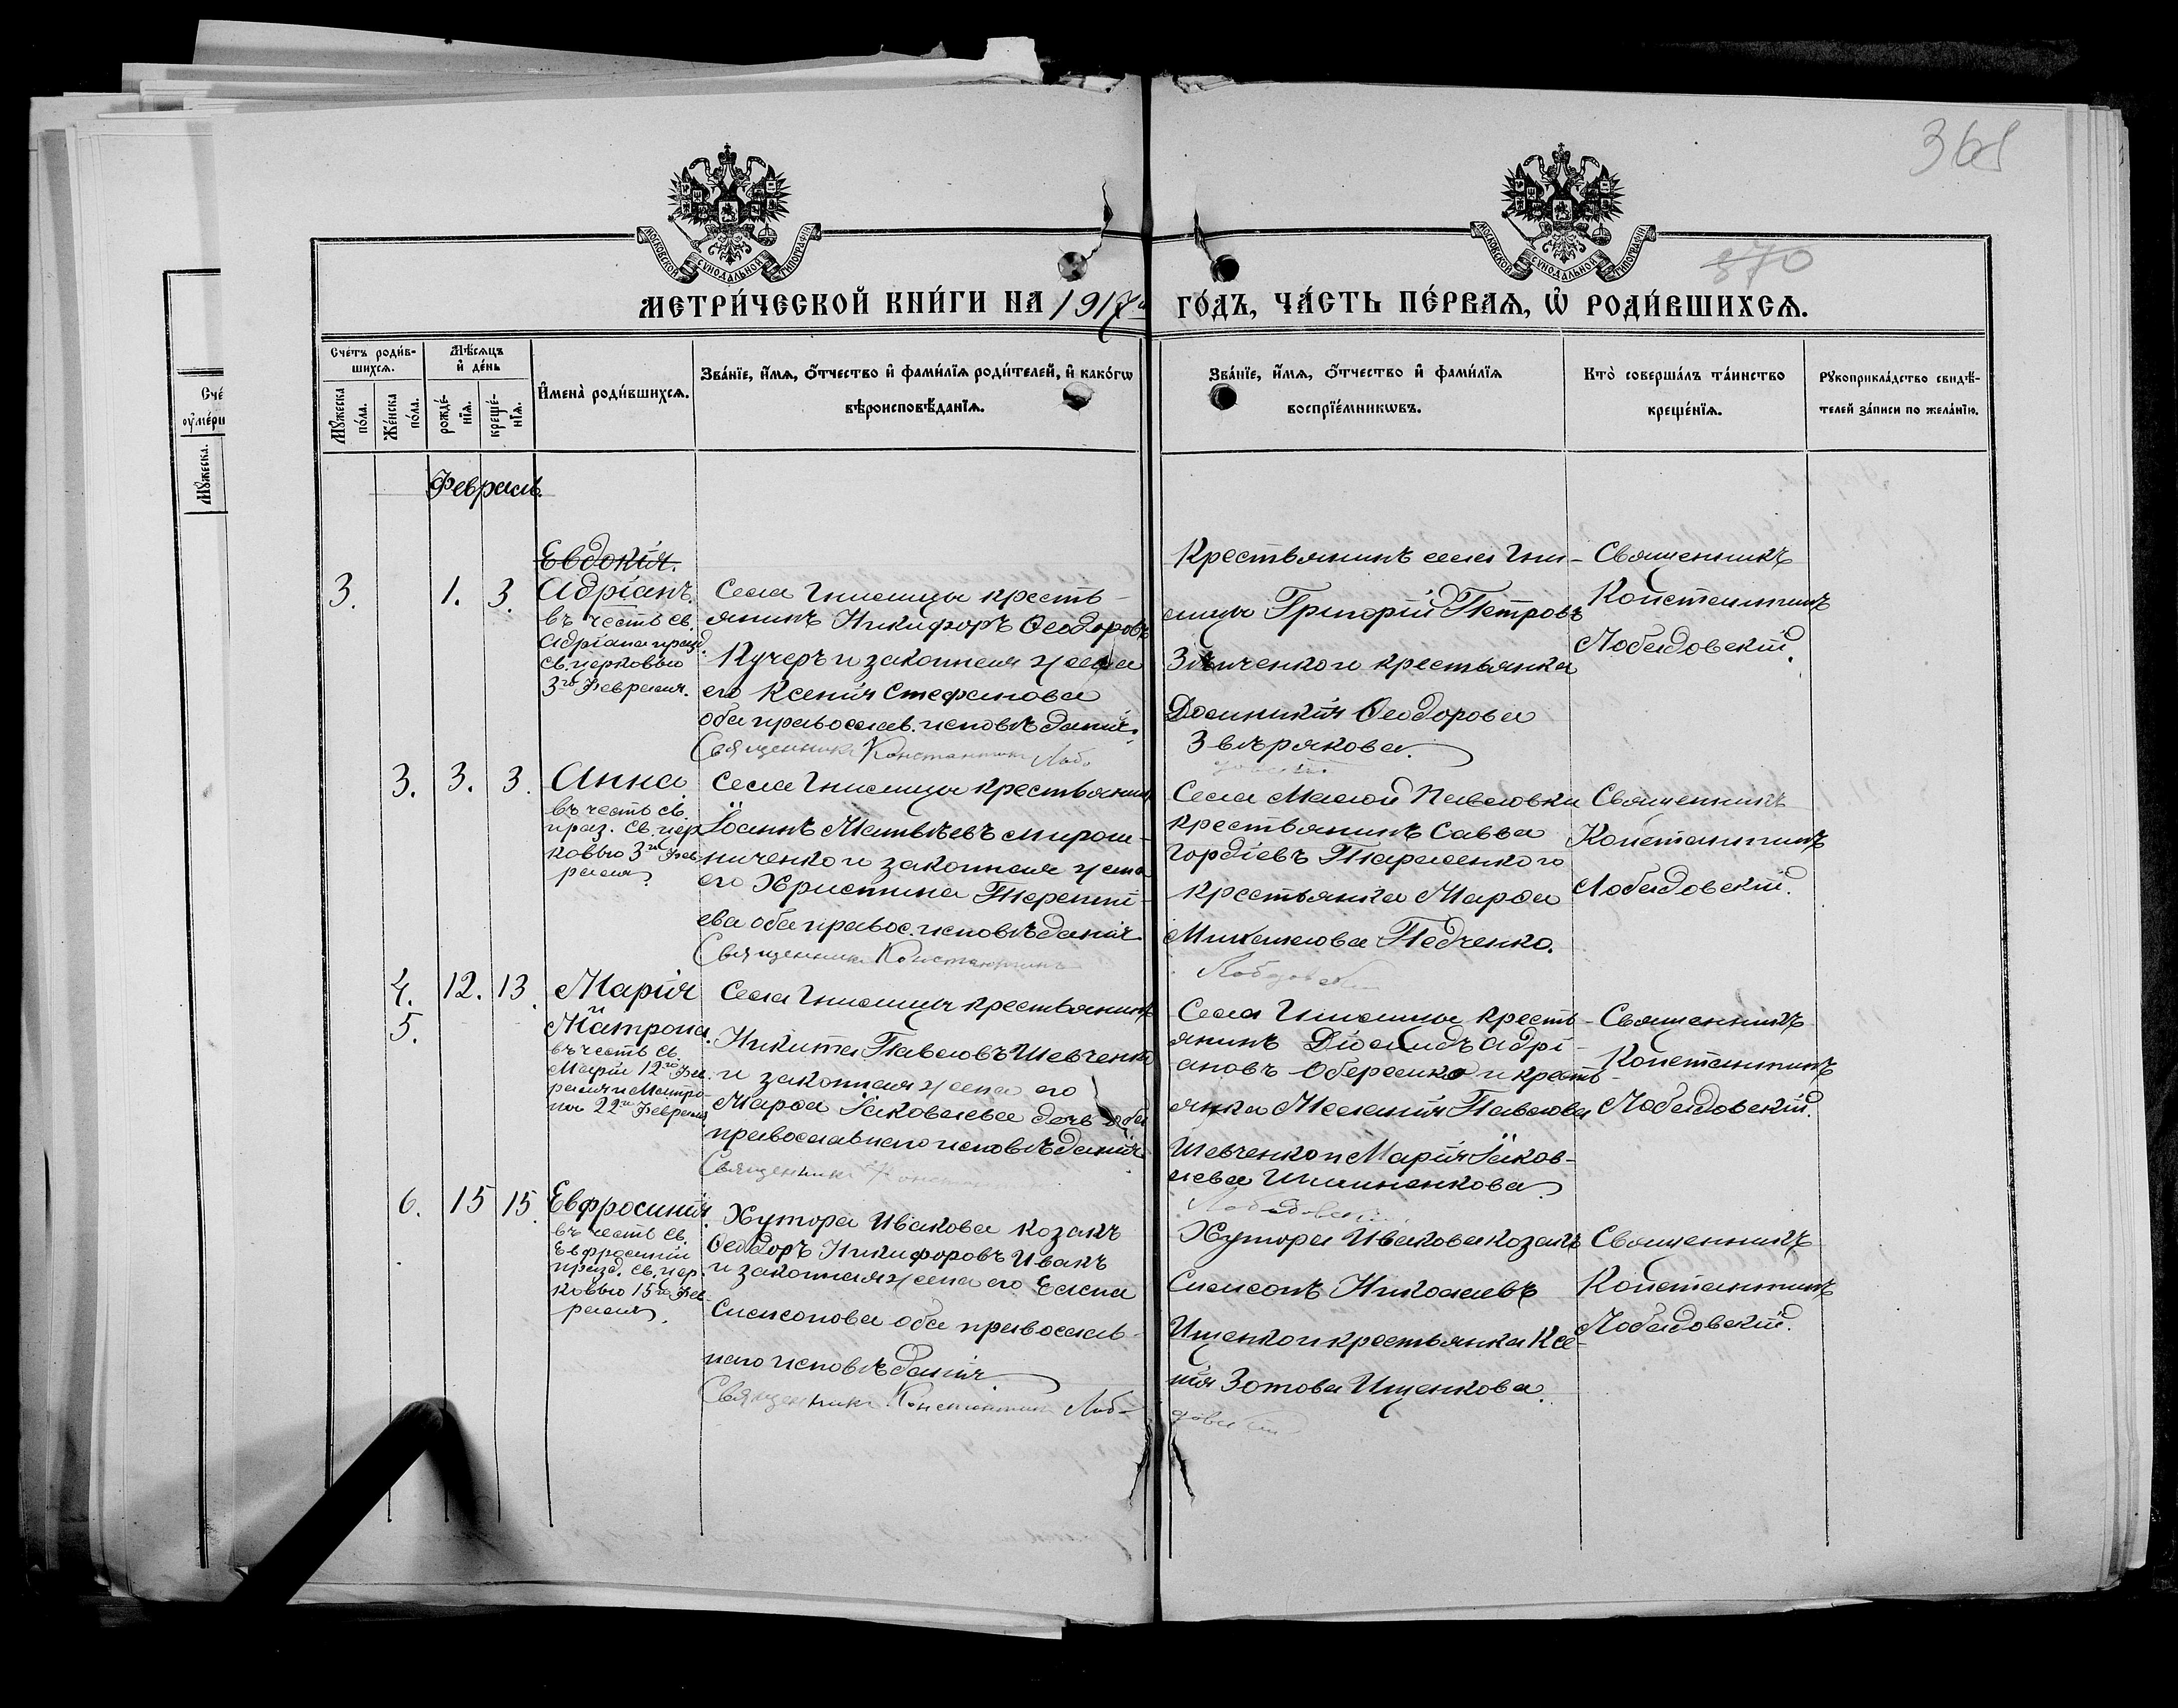 365
870
МОСКОВСКОЙ СѴНОДАЛЬНОЙ ТИПОГРАФІИ
МОСКОВСКОЙ СѴНОДАЛЬНОЙ ТИПОГРАФІИ
МЕТРИ́ЧЕСКОЙ КНИ́ГИ НА 1917й ГО́ДЪ, ЧА́СТЬ ПЕ́РВАѦ, Ѡ҆ РОДИ́ВШИХСѦ.
Сче́тъ роди́в-
шихсѧ.
Мꙋ́жеска по́ла.
Же́нска по́ла.
Мѣ́сѧцъ
и҆ де́нь
рожде́-
нїѧ.
креще́-
нїѧ.
И҆мена̀ роди́вшихсѧ.
Зва́нїе, и҆́мѧ, ѻ҆́тчество и҆ фами́лїѧ роди́телей, и҆ како́гѡ
вѣроисповѣ́данїѧ.
Зва́нїе, и҆́мѧ, ѻ҆́тчество и҆ фами́лїѧ
воспрїе́мникѡвъ.
Кто̀ соверша́лъ та́инство
креще́нїѧ.
Рꙋкоприкла́дство свидѣ́-
телей за́писи по жела́нїю.
Сче
оу҆ме́рш
Мꙋ́жеска.
Февраль.
Евдокія.
3. 1. 3. Адріанъ.
въ честь св.
Адріана празд.
св. церковью
3го Февраля.
Села Гнилицы кресть-
янинъ Никифоръ Ѳеодоровъ
Кучеръ и законная жена
его Ксенія Стефанова
оба православ. исповѣданія.
Священникъ Константинъ Лоба
довскій
Крестьянинъ села Гни-
лицы Григорій Петровъ
Зѣнченко и крестьянка
Домникія Ѳеодорова
Звѣрякова.
Священникъ
Константинъ
Лобадовскій.
3. 3. 3. Анна
въ честь св.
праз. св. цер
ковью 3го Фев
раля.
Села Гнилицы крестьянинъ
Іоаннъ Матвѣевъ Мирош-
ниченко и законная жена
его Христина Теренті-
ева оба правос. исповѣданія
Священникъ Константинъ
Лобадовскій
Села Малой Павловки
крестьянинъ Савва
Гордіевъ Тарасенко и
крестьянка Марѳа
Михаилова Педченко.
Священникъ
Константинъ
Лобадовскій.
4. 12. 13. Марія
5. и
Матрона.
въ честь св.
Маріи 12го Фев.
раля и Матро-
ны 22го Февраля
Села Гнилицы крестьянинъ
Никита Павловъ Шевченко
и законная жена его
Марѳа Іаковлева дочь оба
православнаго исповѣданія
Священникъ Констан
Лобадовскій
Села Гнилицы кресть-
янинъ Діомидъ Адрі-
ановъ Оберемко и кресть-
янка Меланія Павлова
Шевченко и Марія Іаков-
лева
Священникъ
Константинъ
Лобадовскій.
6. 15 15. Евфросинія.
въ честь св.
Евфросиніи
празд. св. цер.
ковью 15го Фев-
раля.
Хутора Ивакова козакъ
Ѳеодоръ Никифоровъ Ивакъ
и законная жена его Елена
Симсонова оба православ-
наго исповѣданія.
Священникъ Константинъ Лоба-
довскій
Хутора Ивакова козакъ
Симсонъ Николаевъ
Ищенко и крестьянка Ксе-
нія Зотова Ищенкова.
Священникъ
Константинъ
Лобадовскій.